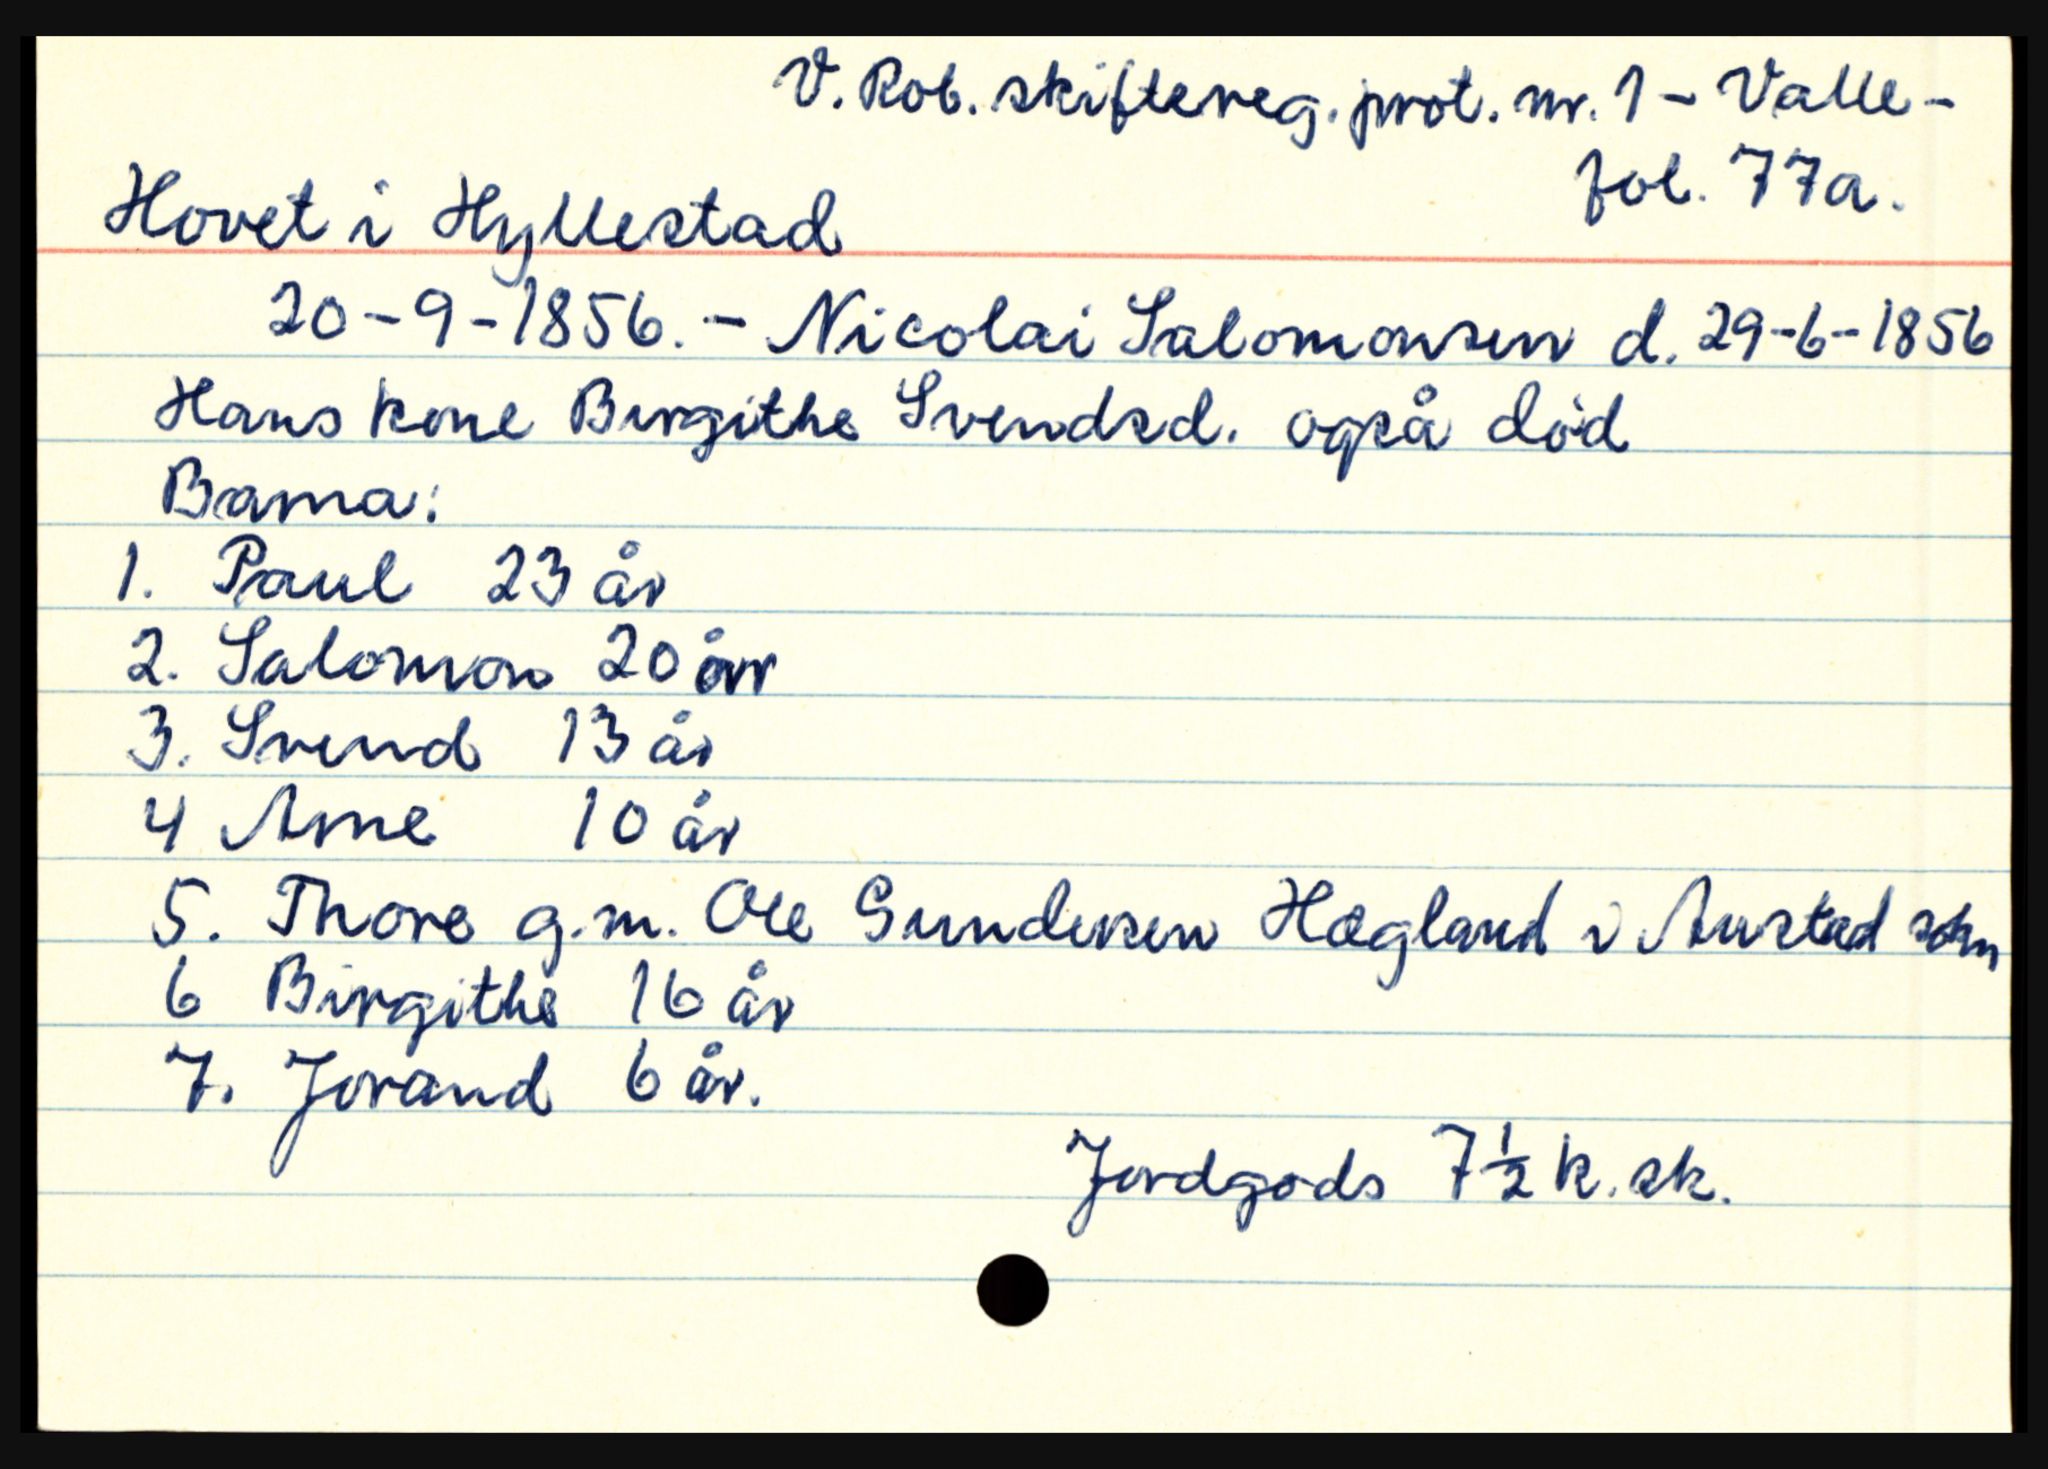 V. Rob. skiftereg. prot. nr. 1 - Valle -
fol. 77a.
Hovet i Hyllestad
20-9-1856. - Nicolai Salomonsen d. 29-6-1856
Hans kone Birgithe Svendsd. også død
Barna:
1. Paul 23 år
2. Salomon 20 år
3. Svend 13 år
4 Arne 10 år
5. Thore g.m. Ole Gundersen Hægland i Austad sokn
6 Birgithe 16 år
7. Jorand 6 år.
Jordgods 7 1/2 k. sk.